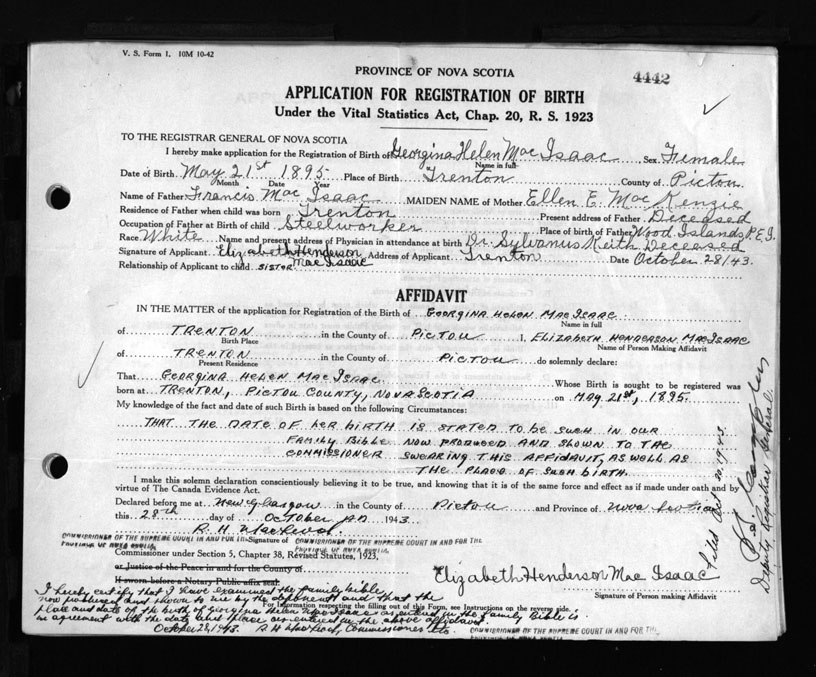 V. S. Form 1. 10M 10-42
PROVINCE OF NOVA SCOTIA
4442
APPLICATION FOR REGISTRATION OF BIRTH
Under the Vital Statistics Act, Chap. 20, R. S. 1923
TO THE REGISTRAR GENERAL OF NOVA SCOTIA
I hereby make application for the Registration of Birth of Georgina Helen Mac Isaac Sex Female
Name in full
Date of Birth May 21st 1895 Place of Birth Trenton County of Pictou
Month Date Year
Name of Father Francis Mac Isaac MAIDEN NAME of Mother Ellen E. Mac Kenzie
Residence of Father when child was born Trenton Present address of Father Deceased
Occupation of Father at Birth of child Steelworker Place of birth of Father Wood Islands P.E.I.
Race White Name and present address of Physician in attendance at birth Dr. Sylvanus Keith Deceased
Signature of Applicant Elizabeth Henderson Mac Isaac Address of Applicant Trenton Date October 28/43.
Relationship of Applicant to child SISTER
AFFIDAVIT
IN THE MATTER of the application for Registration of the Birth of GEORGINA HELEN MAC ISAAC
Name in full
of TRENTON in the County of PICTOU I, ELIZABETH HENDERSON MACISAAC
Birth Place Name of Person Making Affidavit
of TRENTON in the County of PICTOU do solemnly declare:
Present Residence
That GEORGINA HELEN MAC ISAAC Whose Birth is sought to be registered was
born at TRENTON, PICTOU COUNTY, NOVA SCOTIA on MAY 21st, 1895.
My knowledge of the fact and date of such Birth is based on the following Circumstances:
THAT THE DATE OF HER BIRTH IS STATED TO BE SUCH IN OUR
FAMILY BIBLE NOW PRODUCED AND SHOWN TO THE
COMMISSIONER SWEARING THIS AFFIDAVIT, AS WELL AS
THE PLACE OF SUCH BIRTH.
I make this solemn declaration conscientiously believing it to be true, and knowing that it is of the same force and effect as if made under oath and by
virtue of The Canada Evidence Act.
Declared before me at New Glasgow in the County of Pictou and Province of Nova Scotia
this 28th day of OCTOBER A.D. 1943
R. H. MacLeod
Signature of
COMMISSIONER OF THE SUPREME COURT IN AND FOR THE
PROVINCE OF NOVA SCOTIA.
COMMISSIONER OF THE SUPREME COURT IN AND FOR THE
PROVINCE OF NOVA SCOTIA.
Commissioner under Section 5, Chapter 38, Revised Statutes, 1923,
or Justice of the Peace in and for the County of
If sworn before a Notary Public affix seal.
Elizabeth Henderson Mac Isaac
Signature of Person making Affidavit
For Information respecting the filling out of this Form, see Instructions on the reverse side.
I hereby certify that I have examined the family bible
now produced and shown to me by the deponent and that the
place and date of the birth of Georgina Helen MacIsaac as entered in the Family Bible is
in agreement with the date and place as entered in the above affidavit.
October 28, 1943. R H MacLeod, Commissioner etc
COMMISSIONER OF THE SUPREME COURT IN AND FOR THE
PROVINCE OF NOVA SCOTIA.
Filed Oct 30, 1943
Deputy Registrar General.